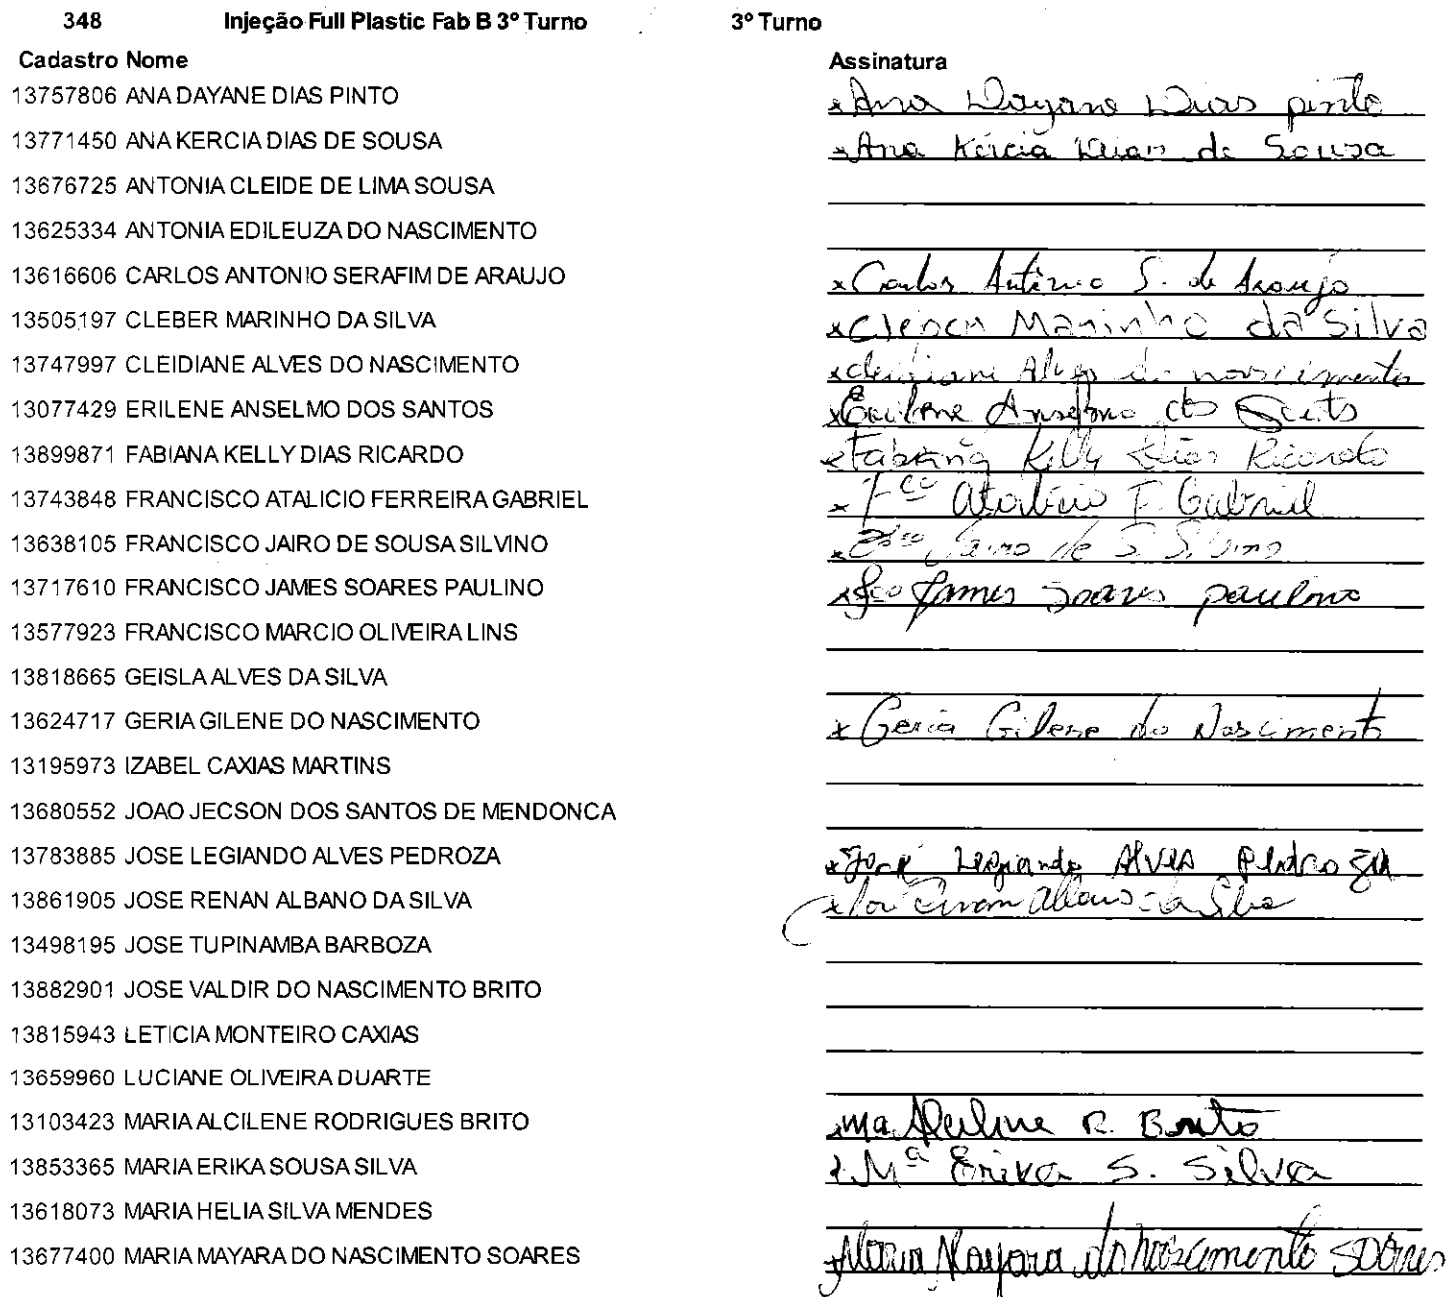 348 Injeção Full Plastic Fab B 3º Turno 3º Turno
Cadastro Nome Assinatura
13757806 ANA DAYANE DIAS PINTO x Ana Dayane Dias pinto
13771450 ANA KERCIA DIAS DE SOUSA x Ana Kércia Dias de Sousa
13676725 ANTONIA CLEIDE DE LIMA SOUSA
13625334 ANTONIA EDILEUZA DO NASCIMENTO
13616606 CARLOS ANTONIO SERAFIM DE ARAUJO x Carlos Antônio S. de Araujo
13505197 CLEBER MARINHO DA SILVA x Cleber Marinho da Silva
13747997 CLEIDIANE ALVES DO NASCIMENTO x cleidiane Alves do nascimento
13077429 ERILENE ANSELMO DOS SANTOS x Erilene Anselmo dos Santos
13899871 FABIANA KELLY DIAS RICARDO x Fabiana Kelly Dias Ricardo
13743848 FRANCISCO ATALICIO FERREIRA GABRIEL x Fco Atalício F. Gabriel
13638105 FRANCISCO JAIRO DE SOUSA SILVINO x Fco Jairo de S. Silvino
13717610 FRANCISCO JAMES SOARES PAULINO x Fco James Soares paulino
13577923 FRANCISCO MARCIO OLIVEIRA LINS
13818665 GEISLA ALVES DA SILVA
13624717 GERIA GILENE DO NASCIMENTO x Geria Gilene do Nascimento
13195973 IZABEL CAXIAS MARTINS
13680552 JOAO JECSON DOS SANTOS DE MENDONCA
13783885 JOSE LEGIANDO ALVES PEDROZA x José Legiando Alves Pedroza
13861905 JOSE RENAN ALBANO DA SILVA x José Renan Albano da Silva
13498195 JOSE TUPINAMBA BARBOZA
13882901 JOSE VALDIR DO NASCIMENTO BRITO
13815943 LETICIA MONTEIRO CAXIAS
13659960 LUCIANE OLIVEIRA DUARTE
13103423 MARIA ALCILENE RODRIGUES BRITO x Ma Alcilene R. Brito
13853365 MARIA ERIKA SOUSA SILVA x Mª Erika S. Silva
13618073 MARIA HELIA SILVA MENDES
13677400 MARIA MAYARA DO NASCIMENTO SOARES x Maria Mayara do Nascimento Soares